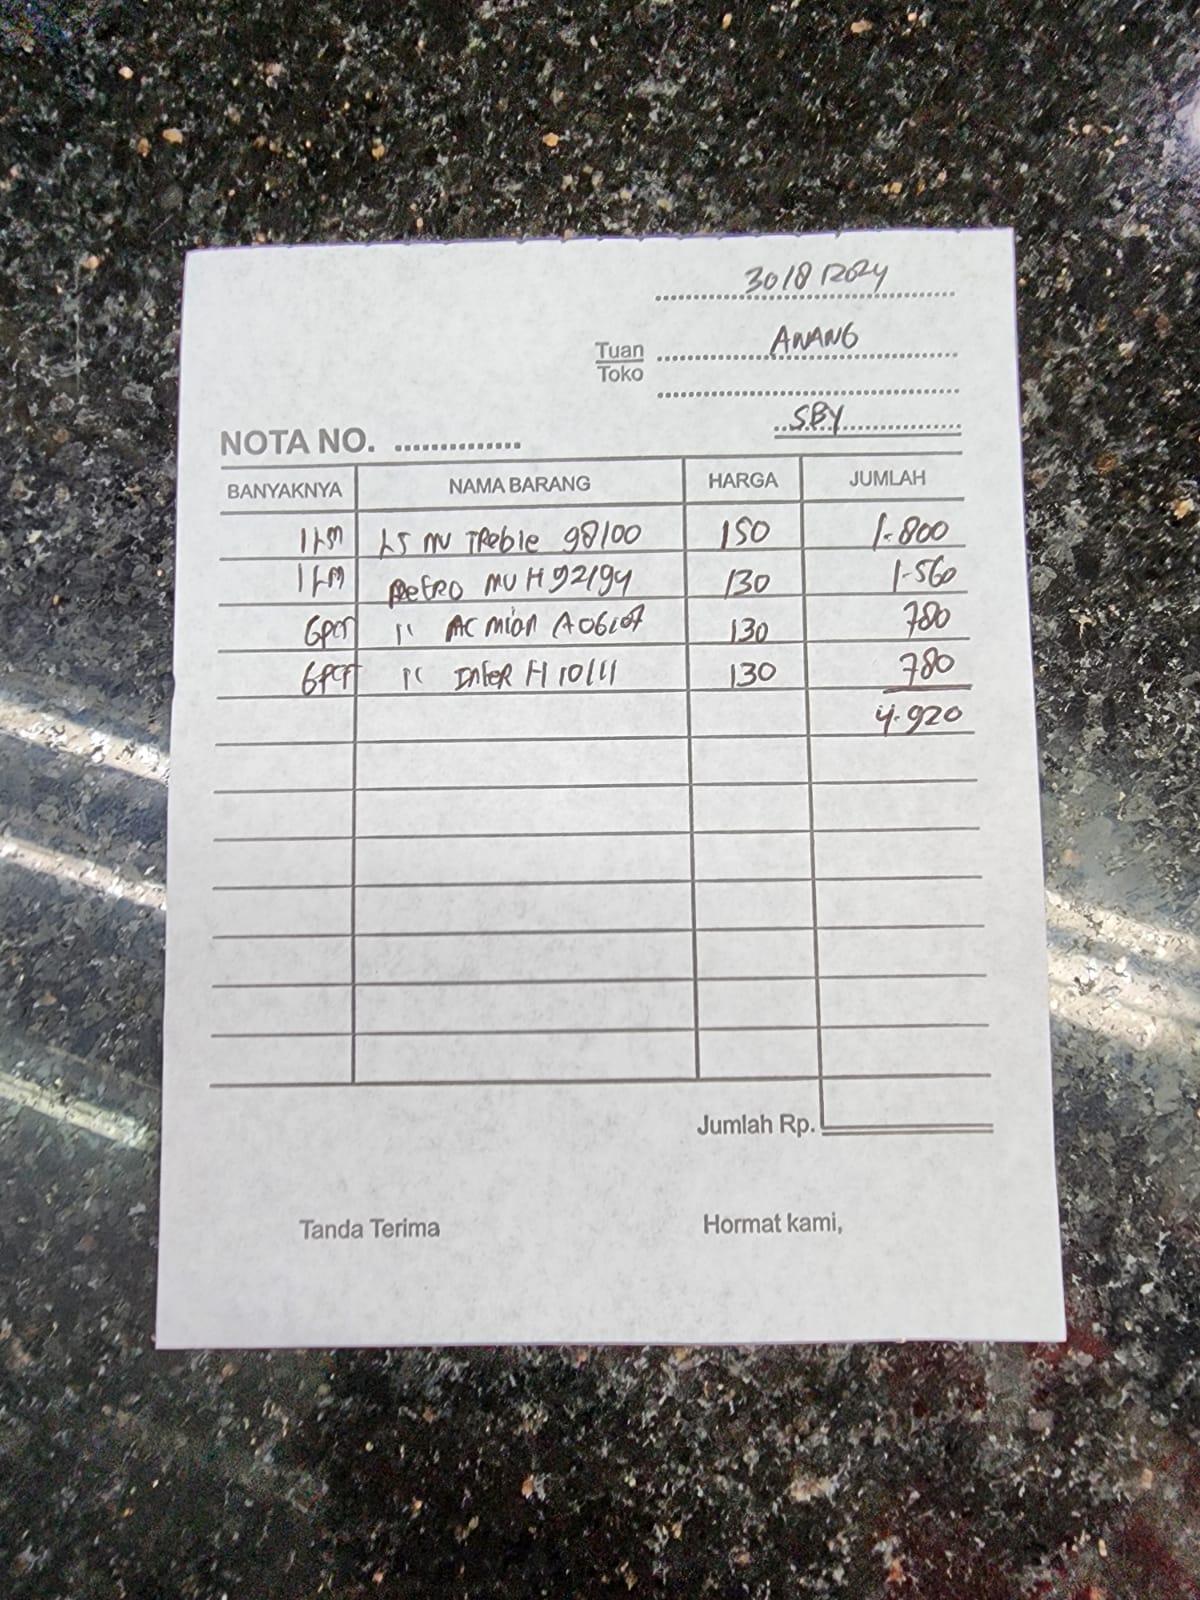 30/8/2024
Tuan
Toko
ANANG
SBY
NOTA NO. ..............
BANYAKNYA NAMA BARANG HARGA JUMLAH
1 LSN LS MU Treble 98/00 150 1.800
1 LSN Retro MU H 92/94 130 1.560
6pcs " AC milan A 06/07 130 780
6pcs " Inter H 10/11 130 780
4.920
Jumlah Rp.
Tanda Terima Hormat kami,